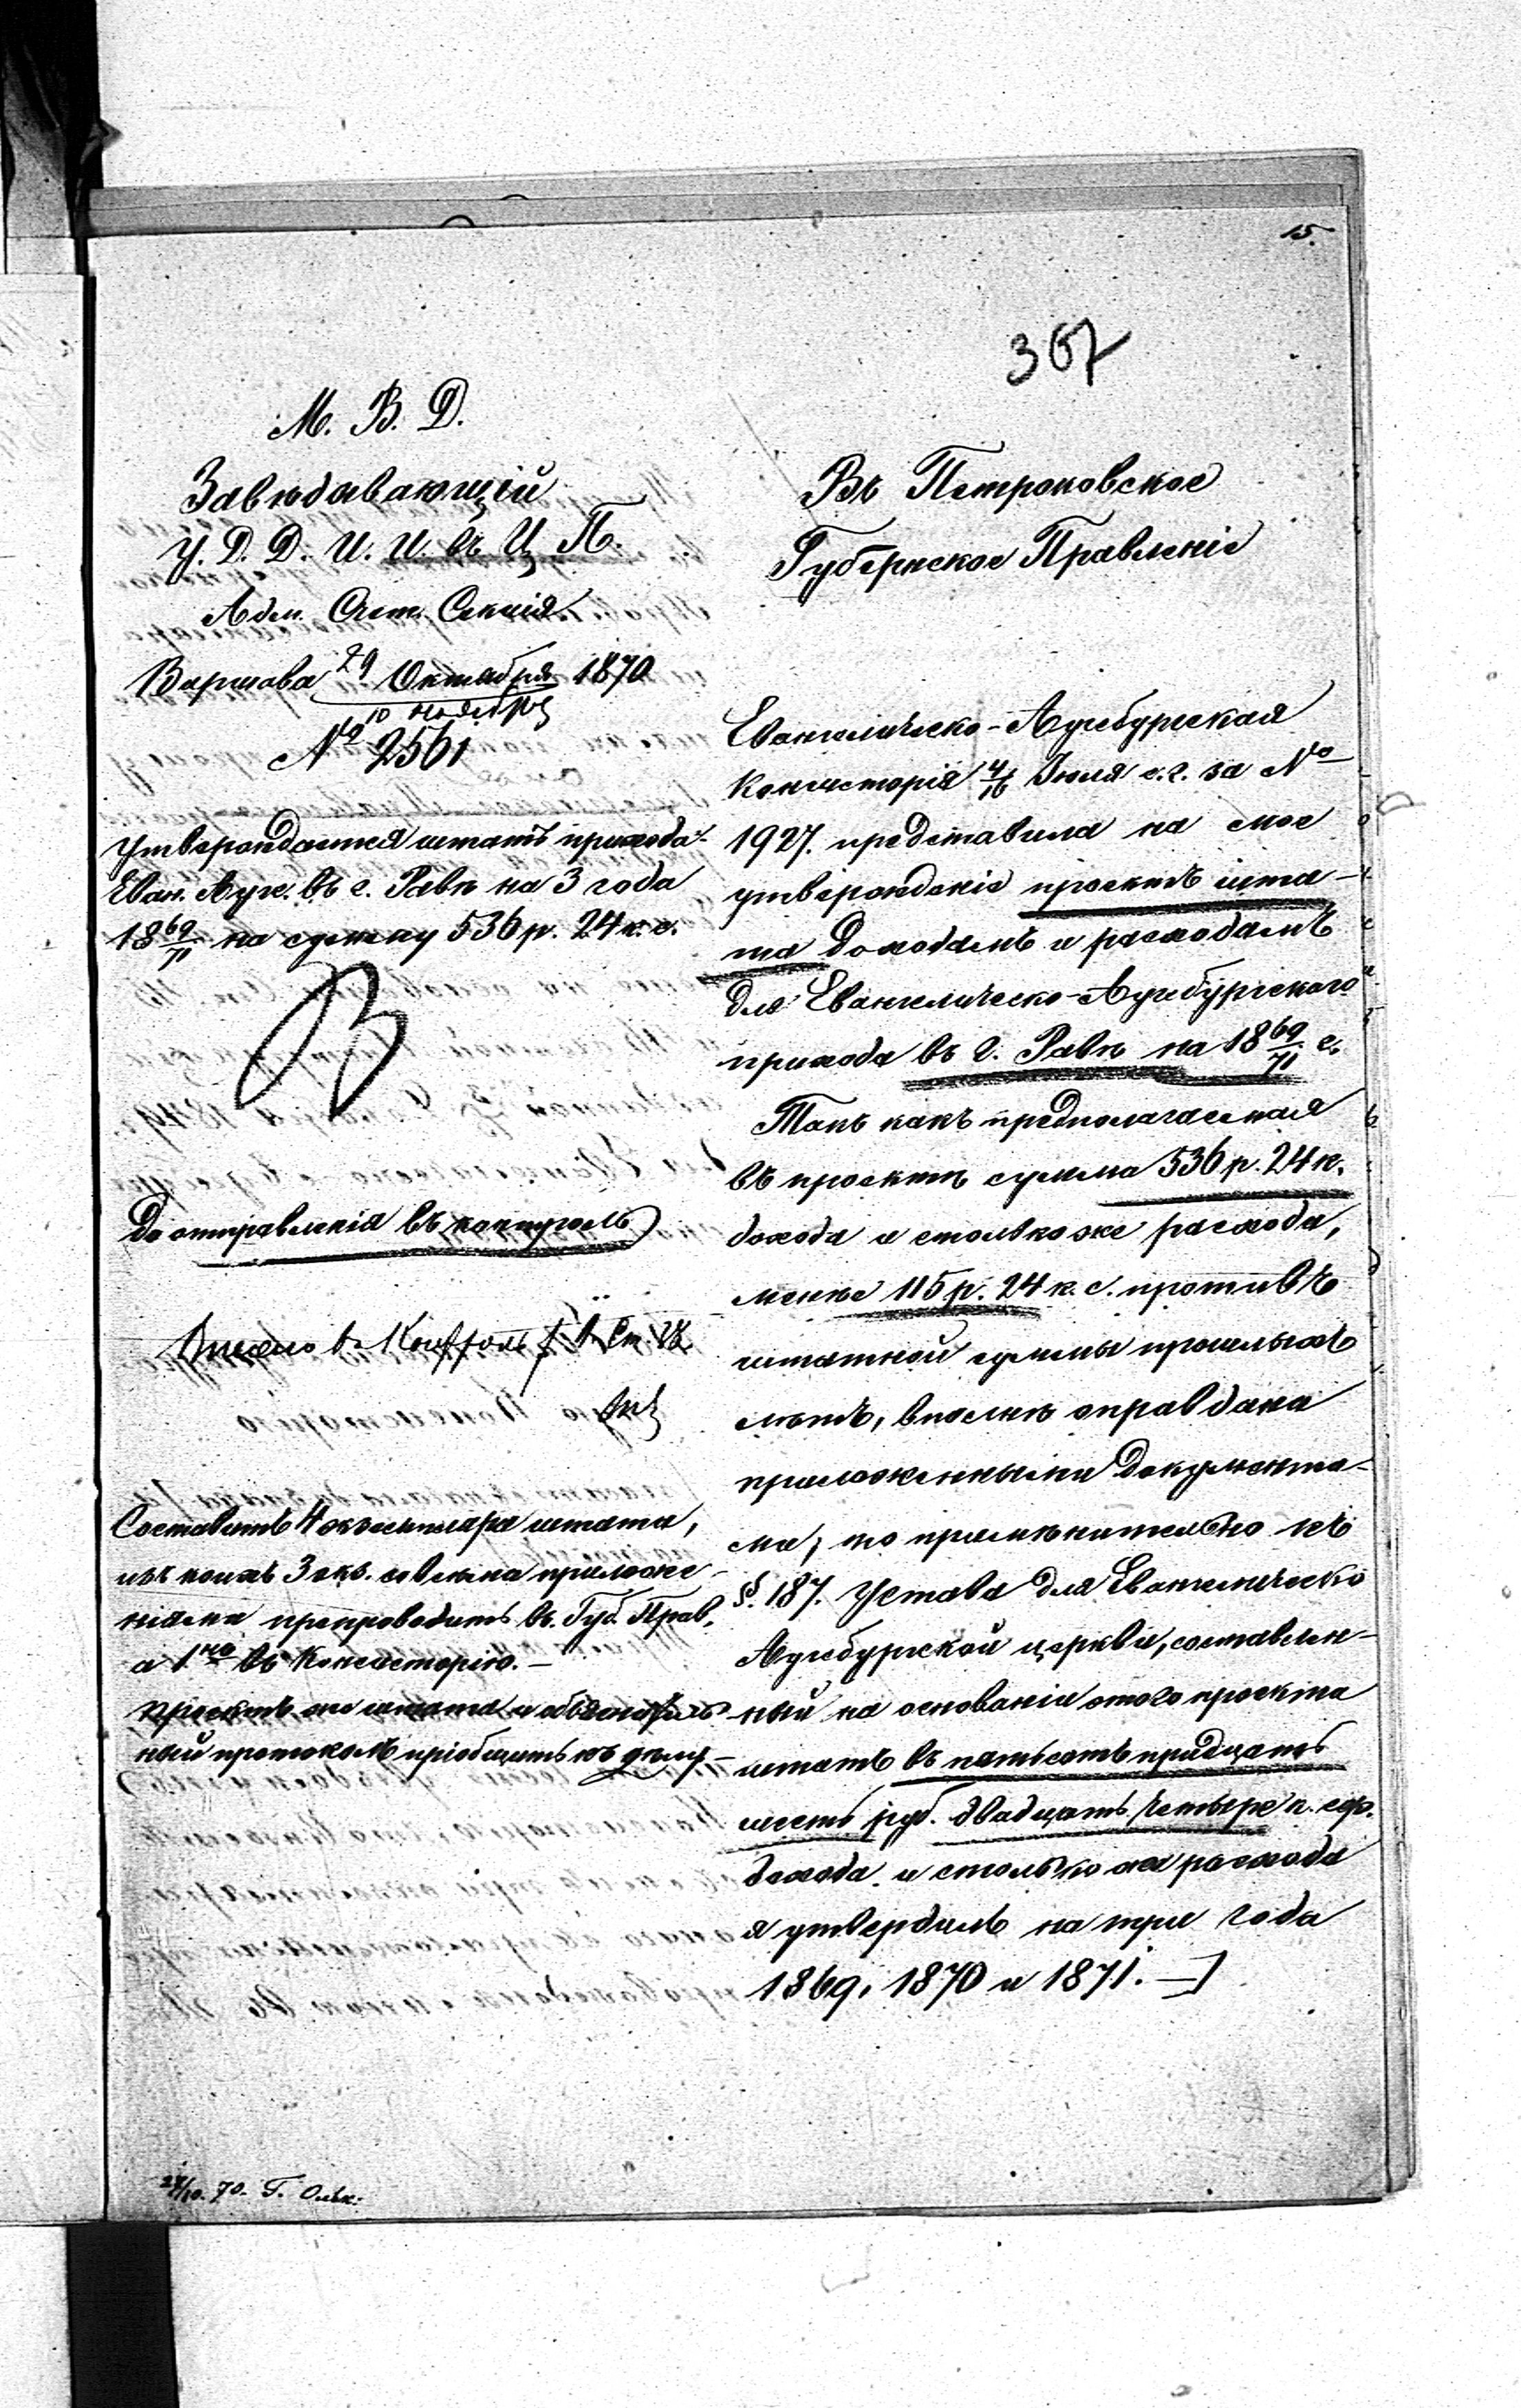 15.
367
М. В. Д.
Завѣдывающій
У. Д. Д. И. И. въ Ц. П.
Адм. Счет. Секція
Варшава 29 Октября 1870
10 ноября
№ 2561
Утверждается штатъ прихода
Еван. Ауг. въ г. Равѣ на 3 года
18 69/71 на сумму 536 р. 24 к. с.
До отправленія въ контроль
въ Контроль
Составить 4 экземпляра штата,
изъ коихъ 3 экз. со всѣми приложе-
ніями препроводить въ Губ. Прав.
а 1 въ Консисторію.—
Проектъ же штата и объяснитель-
ный протоколъ пріобщить къ дѣлу—
27/10. 70. Г.
Въ Петроковское
Губернское Правленіе
Евангелическо-Аугсбургская
Консисторія 4/16 Іюля с. г. за №
1927. представила на мое
утвержденіе проектъ шта-
та доходамъ и расходамъ
для Евангелическо-Аугсбургскаго
прихода въ г. Равѣ на 18 69/71 г.
Такъ какъ предполагаемая
въ проектѣ сумма 536 р. 24 к.
дохода и столько же расхода,
менѣе 115 р. 24 к. с. противъ
штатной суммы прошлыхъ
лѣтъ, вполнѣ оправдана
приложенными документа-
ми, то примѣнительно къ
§. 187. Устава для Евангелическо
Аугсбургской церкви, составлен-
ный на основаніи этого проекта
штатъ въ пятьсотъ тридцать
шесть руб. двадцать четыре к. сер.
дохода и столько же расхода
я утвердилъ на три года
1869, 1870 и 1871. —]